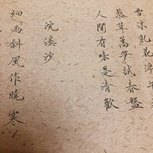 雪沫乳花浮午
蓼茸蒿笋試春盤
人間有味是清歡
浣溪沙
細雨斜風作曉寒